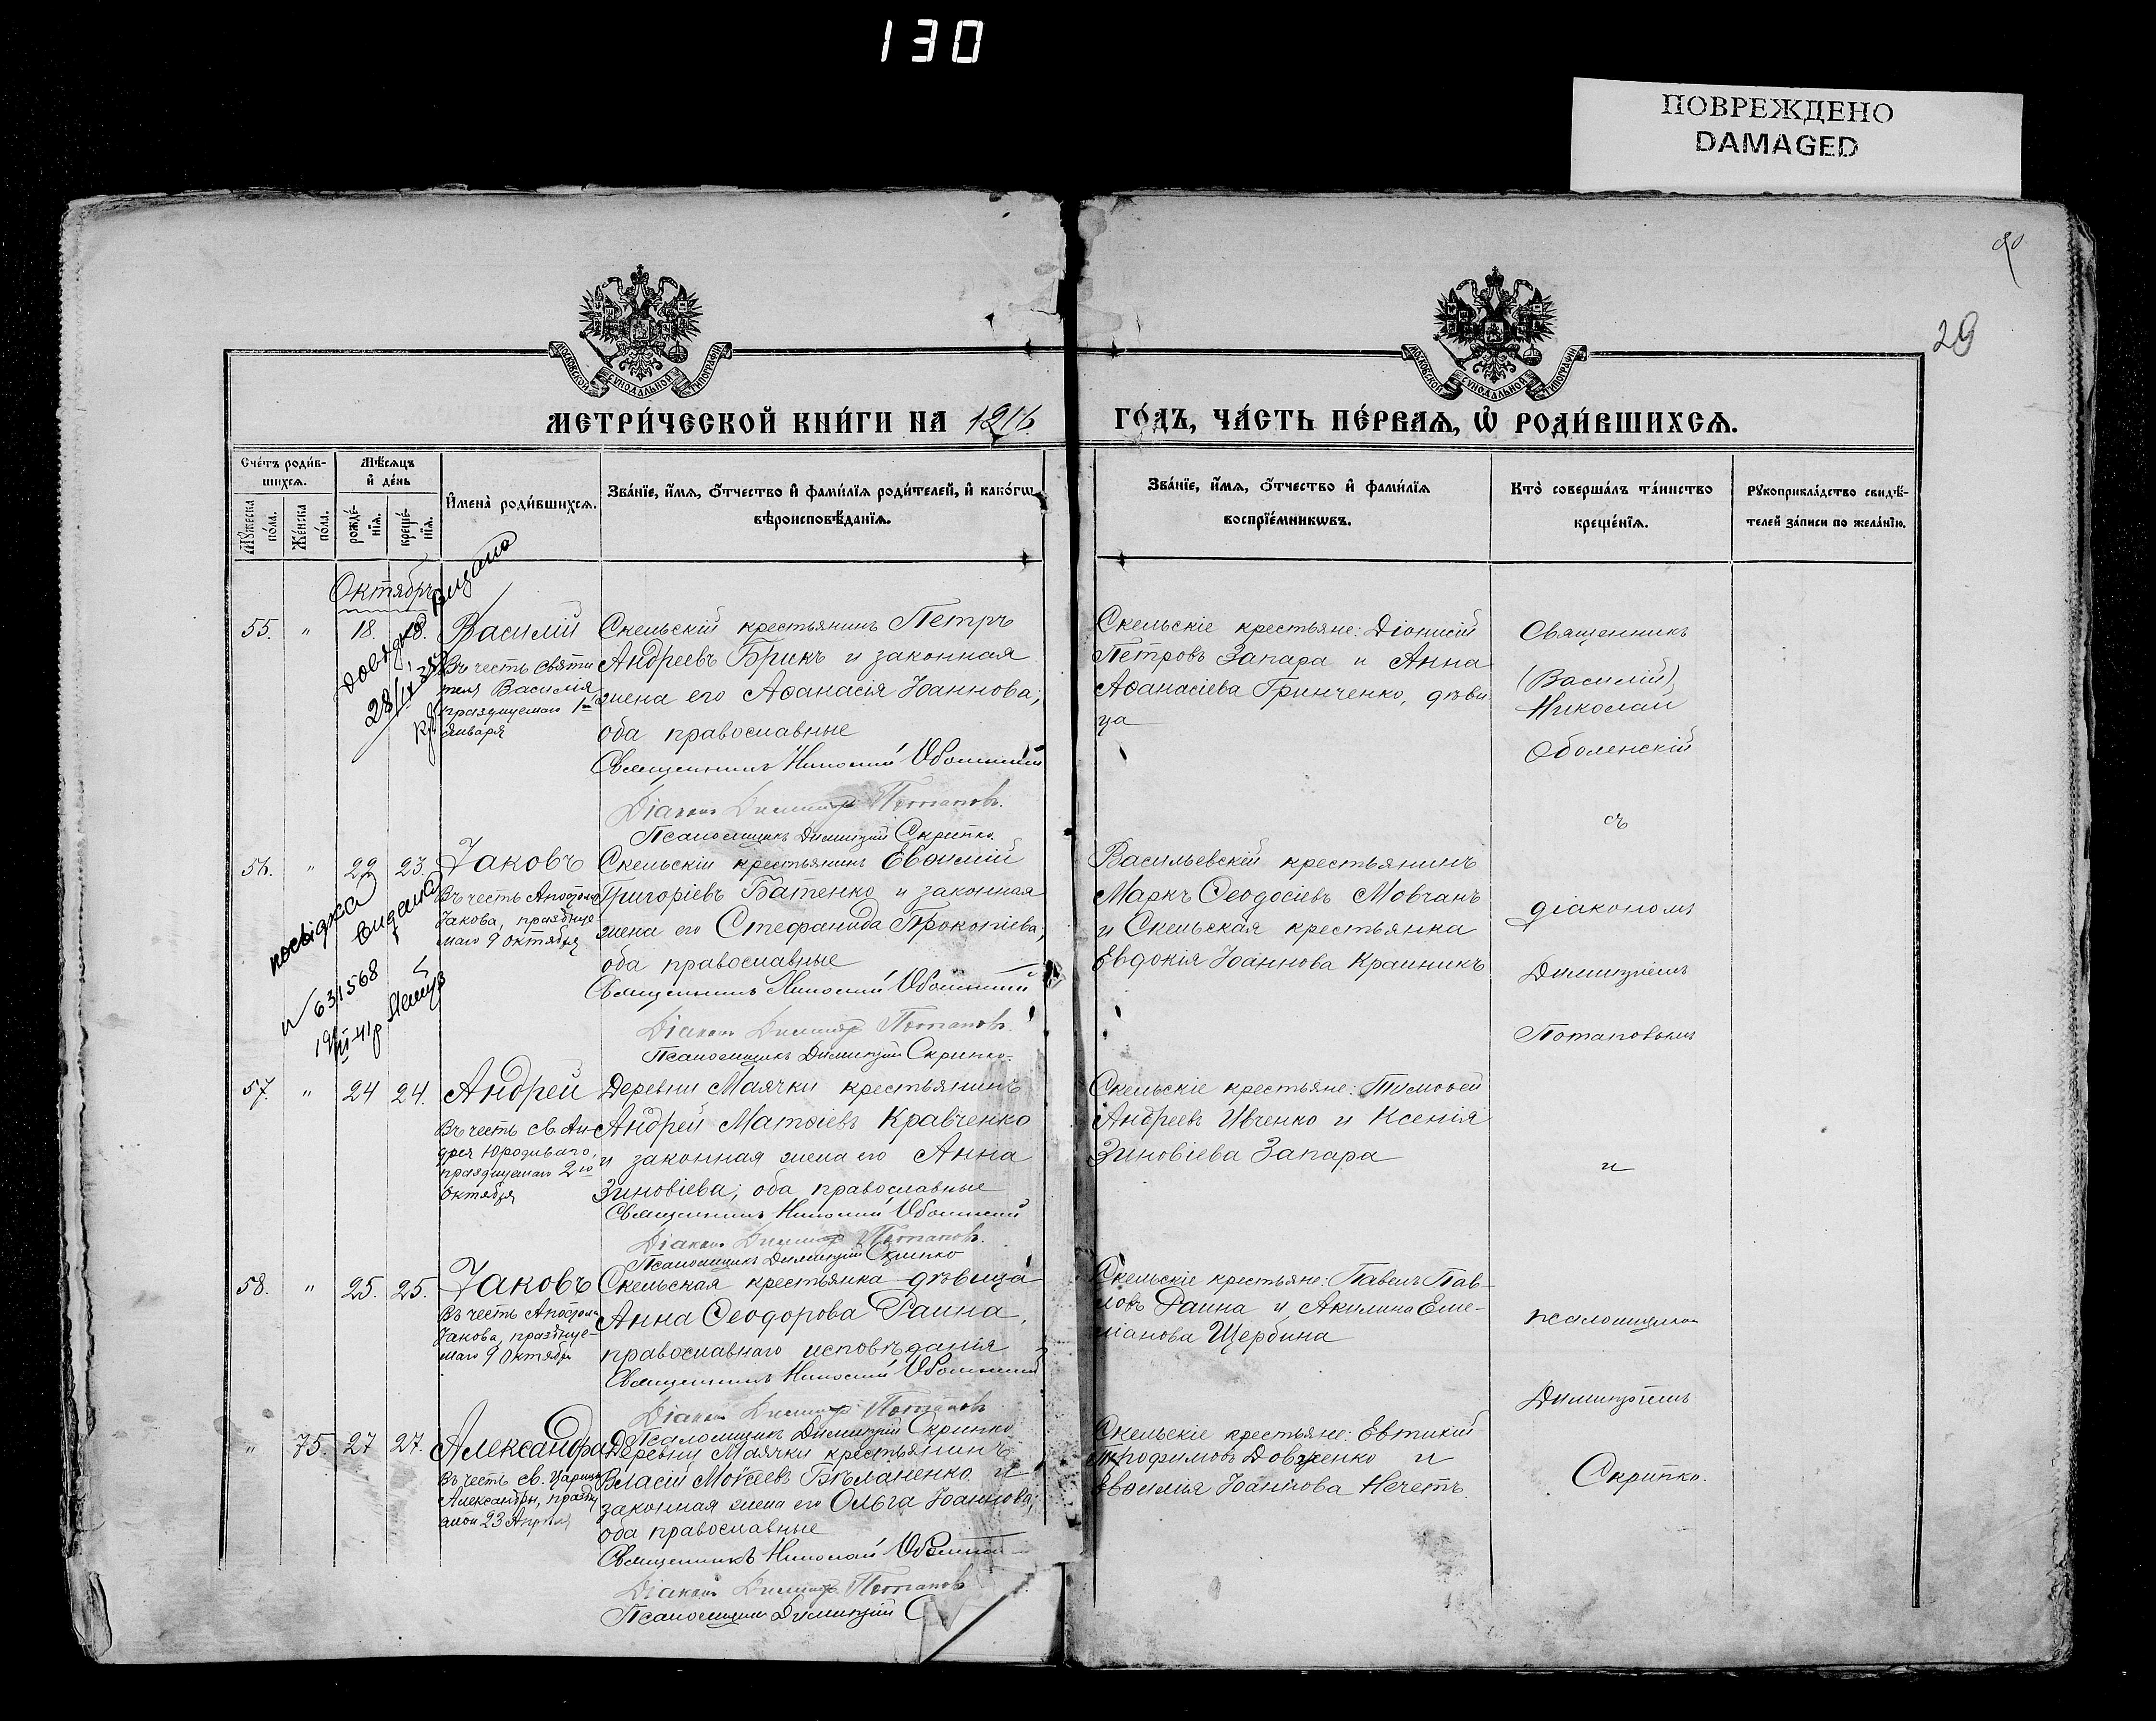 130
ПОВРЕЖДЕНО
DAMAGED
29
МОСКОВСКОЙ СѴНОДАЛЬНОЙ ТИПОГРАФІИ
МОСКОВСКОЙ СѴНОДАЛЬНОЙ ТИПОГРАФІИ
МЕТРИ́ЧЕСКОЙ КНИ́ГИ НА 1916. ГО́ДЪ, ЧА́СТЬ ПЕ́РВАѦ, Ѡ҆ РОДИ́ВШИХСѦ.
Сче́тъ роди́в-
шихсѧ.
Мѣ́сѧцъ
и҆ де́нь
Мꙋ́жеска
по́ла.
Же́нска
по́ла.
рожде́-
нїѧ.
креще́-
нїѧ.
И҆мена̀ роди́вшихсѧ.
Зва́нїе, и҆́мѧ, ѻ҆́тчество и҆ фами́лїѧ роди́телей, и҆ како́гѡ
вѣроисповѣ́данїѧ.
Зва́нїе, и҆́мѧ, ѻ҆́тчество и҆ фами́лїѧ
воспрїе́мникѡвъ.
Кто̀ соверша́лъ та́инство
креще́нїѧ.
Рꙋкоприкла́дство свидѣ́-
телей за́писи по жела́нїю.
Октябрь
55. " 18. 18. Василій
Въ честь Святи
теля Василія
празднуемаго 1го
января
Скельскій крестьянинъ Петръ
Андреевъ Брикъ и законная
жена его Аѳанасія Іоаннова;
оба православные
Священникъ Николай Оболенскій
Діаконъ Димитрій Потаповъ.
Псаломщикъ Димитрій Скрипко.
Скельскіе крестьяне: Діонисій
Петровъ Запара и Анна
Аѳанасіева Гринченко, дѣви
ца
Довідка видана
28/IX 35
56. " 22 23. Іаковъ
Въ честь Апостола
Іакова, праздnуе-
маго 9 октября
Скельскій крестьянинъ Евѳимій
Григоріевъ Батенко и законная
жена его Стефанида Прокопіева;
оба православные
Священникъ Николай Оболенскій
Діаконъ Димитрій Потаповъ.
Псаломщикъ Димитрій Скрипко.
Васильевскій крестьянинъ
Маркъ Ѳеодосіевъ Мовчанъ
и Скельская крестьянка
Евдокія Іоаннова Краиникъ
посвідка
видана
№ 631568
57. " 24 24. Андрей
Въ честь св. Ан-
дрея Юродиваго,
празднуемаго 2го
октября
Деревни Маячки крестьянинъ
Андрей Матѳіевъ Кравченко
и законная жена его Анна
Зиновіева; оба православные
Священникъ Николай Оболенскій
Діаконъ Димитрій Потаповъ.
Псаломщикъ Димитрій Скрипко
Скельскіе крестьяне: Тимоѳей
Андреевъ Ивченко и Ксенія
Зиновіева Запара
58. " 25. 25. Іаковъ
Въ честь Апостола
Іакова, праздnуе-
маго 9 октября
Скельская крестьянка дѣвица
Анна Ѳеодорова Раина,
православнаго исповѣданія
Священникъ Николай Оболенскій
Діаконъ Димитрій Потаповъ
Псаломщикъ Димитрій Скрипко.
Скельскіе крестьяне: Павелъ Пав-
ловъ Раина и Акилина Еме-
ліанова Щербина
" 75. 27 27. Александра
Въ честь св. Царицы
Александры, праздну
23 Апрѣля
Деревни Маячки крестьянинъ
Власій Моѵсеевъ Бѣланенко и
законная жена его Ольга Іоаннова;
оба православные
Священникъ Николай Оболенскій
Діаконъ Димитрій Потаповъ
Псаломщикъ Димитрій С
Скельскіе крестьяне: Евтихій
Трофимовъ Довженко и
Евѳимія Іоаннова Нечетъ.
Священникъ
(Василій)
Николай
Оболенскій
съ
діакономъ
Димитріемъ
Потаповымъ
и
псаломщикомъ
Димитріемъ
Скрипко.